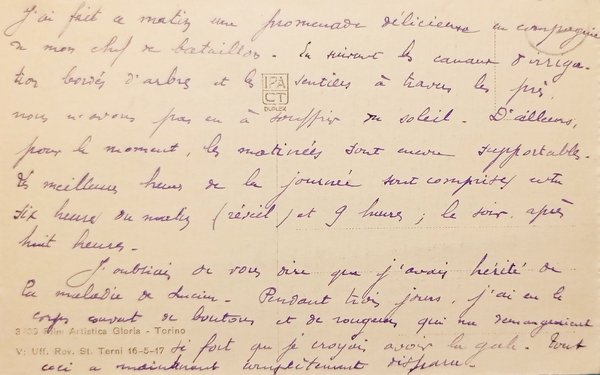 J'ai fait ce matin une promenade délicieuse en compagnie
de mon chef de bataillon. En suivant les canaux d'irriga-
tion bordés d'arbres et les sentiers à travers les prés,
nous n'avons pas eu à souffrir du soleil. D'ailleurs,
pour le moment, les matinées sont encore supportables.
Les meilleures heures de la journée sont comprises entre
six heures du matin (réveil) et 9 heures ; le soir, après
huit heures.
J'oubliais de vous dire que j'avais hérité de
la maladie de Lucien. Pendant trois jours, j'ai eu le
corps couvert de boutons et de rougeurs qui me démangeaient
si fort que je croyais avoir la gale. Tout
ceci a maintenant complètement disparu.
IPA
CT
DUPLEX
3239 Film Artistica Gloria - Torino
V: Uff. Rev. St. Terni 16-5-17